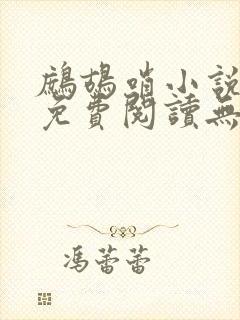 鷓鴣哨小說
免費閱讀無
馮蕾蕾